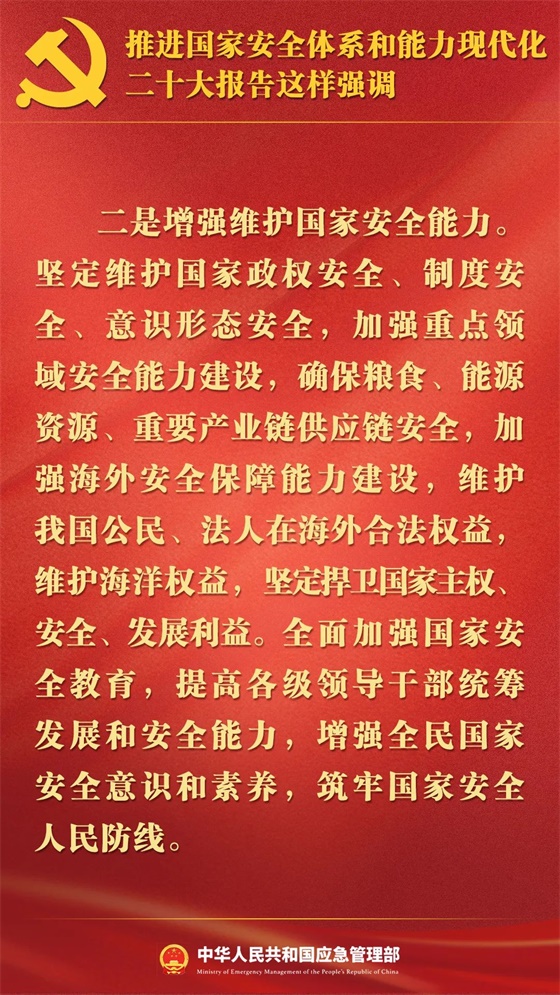 推进国家安全体系和能力现代化
二十大报告这样强调
二是增强维护国家安全能力。
坚定维护国家政权安全、制度安
全、意识形态安全，加强重点领
域安全能力建设，确保粮食、能源
资源、重要产业链供应链安全，加
强海外安全保障能力建设，维护
我国公民、法人在海外合法权益，
维护海洋权益，坚定捍卫国家主权、
安全、发展利益。全面加强国家安
全教育，提高各级领导干部统筹
发展和安全能力，增强全民国家
安全意识和素养，筑牢国家安全
人民防线。
中华人民共和国应急管理部
Ministry of Emergency Management of the People's Republic of China